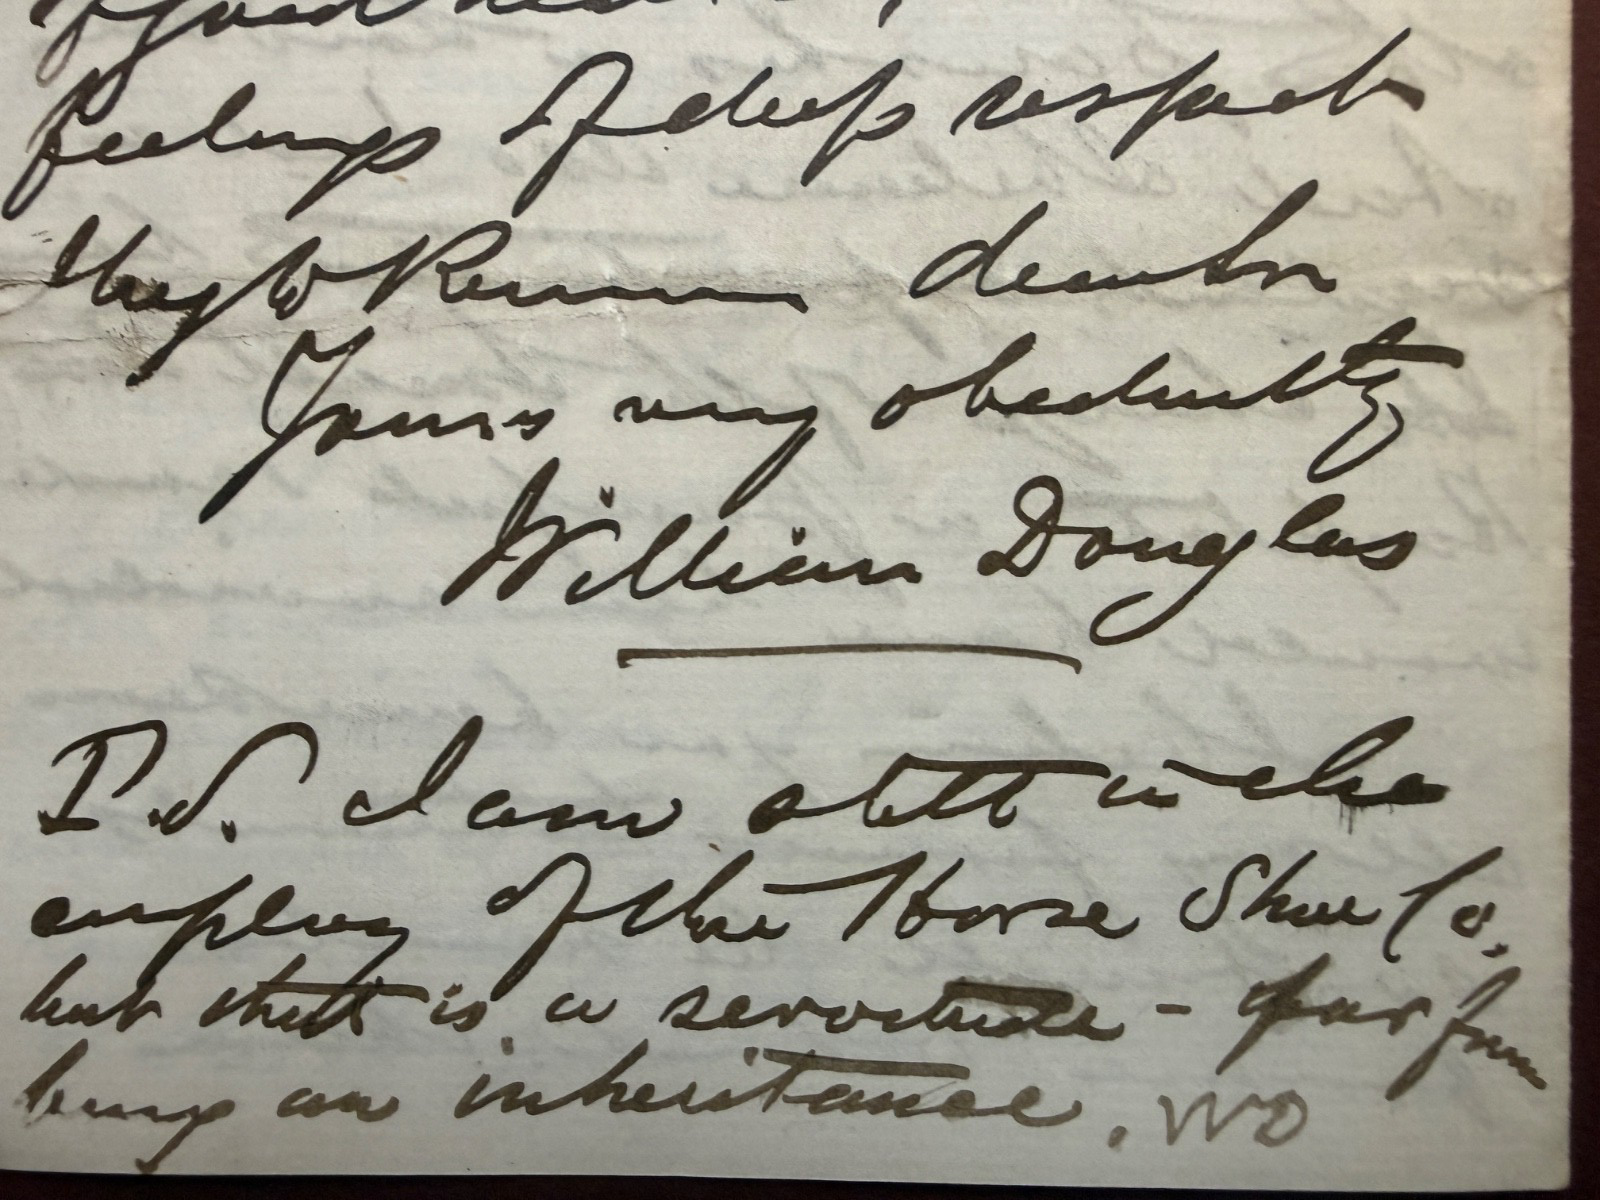 feelings of deep respect
I beg to Remain dear Sir
Yours very obediently
William Douglas
P.S. I am still in the
employ of the Horse Shoe Co.
but that is a servitude - far from
being an inheritance. WD